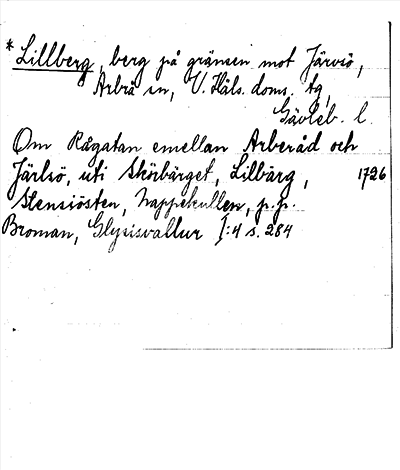 * Lillberg, berg på gränsen mot Järvsö,
Arbrå sn, V. Häls. doms. tg,
Gävleb. l.
Om Rågatan emellan Arberåd och
Järlsö, uti Skörbärget, Lilbärg, 1726
Stensiösten, Nappekullen, p.p.
Broman, Glysisvallur I:4 s. 284